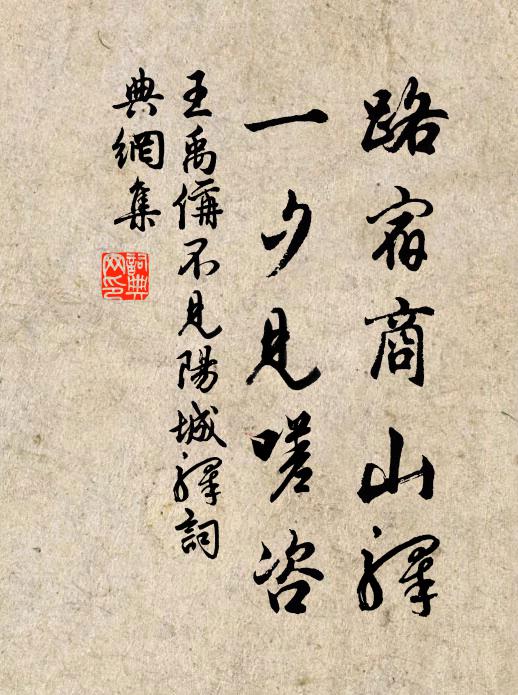 路宿商山驛
一夕見嗟咨
王禹偁不見陽城驛詞
典網集
詞典网印